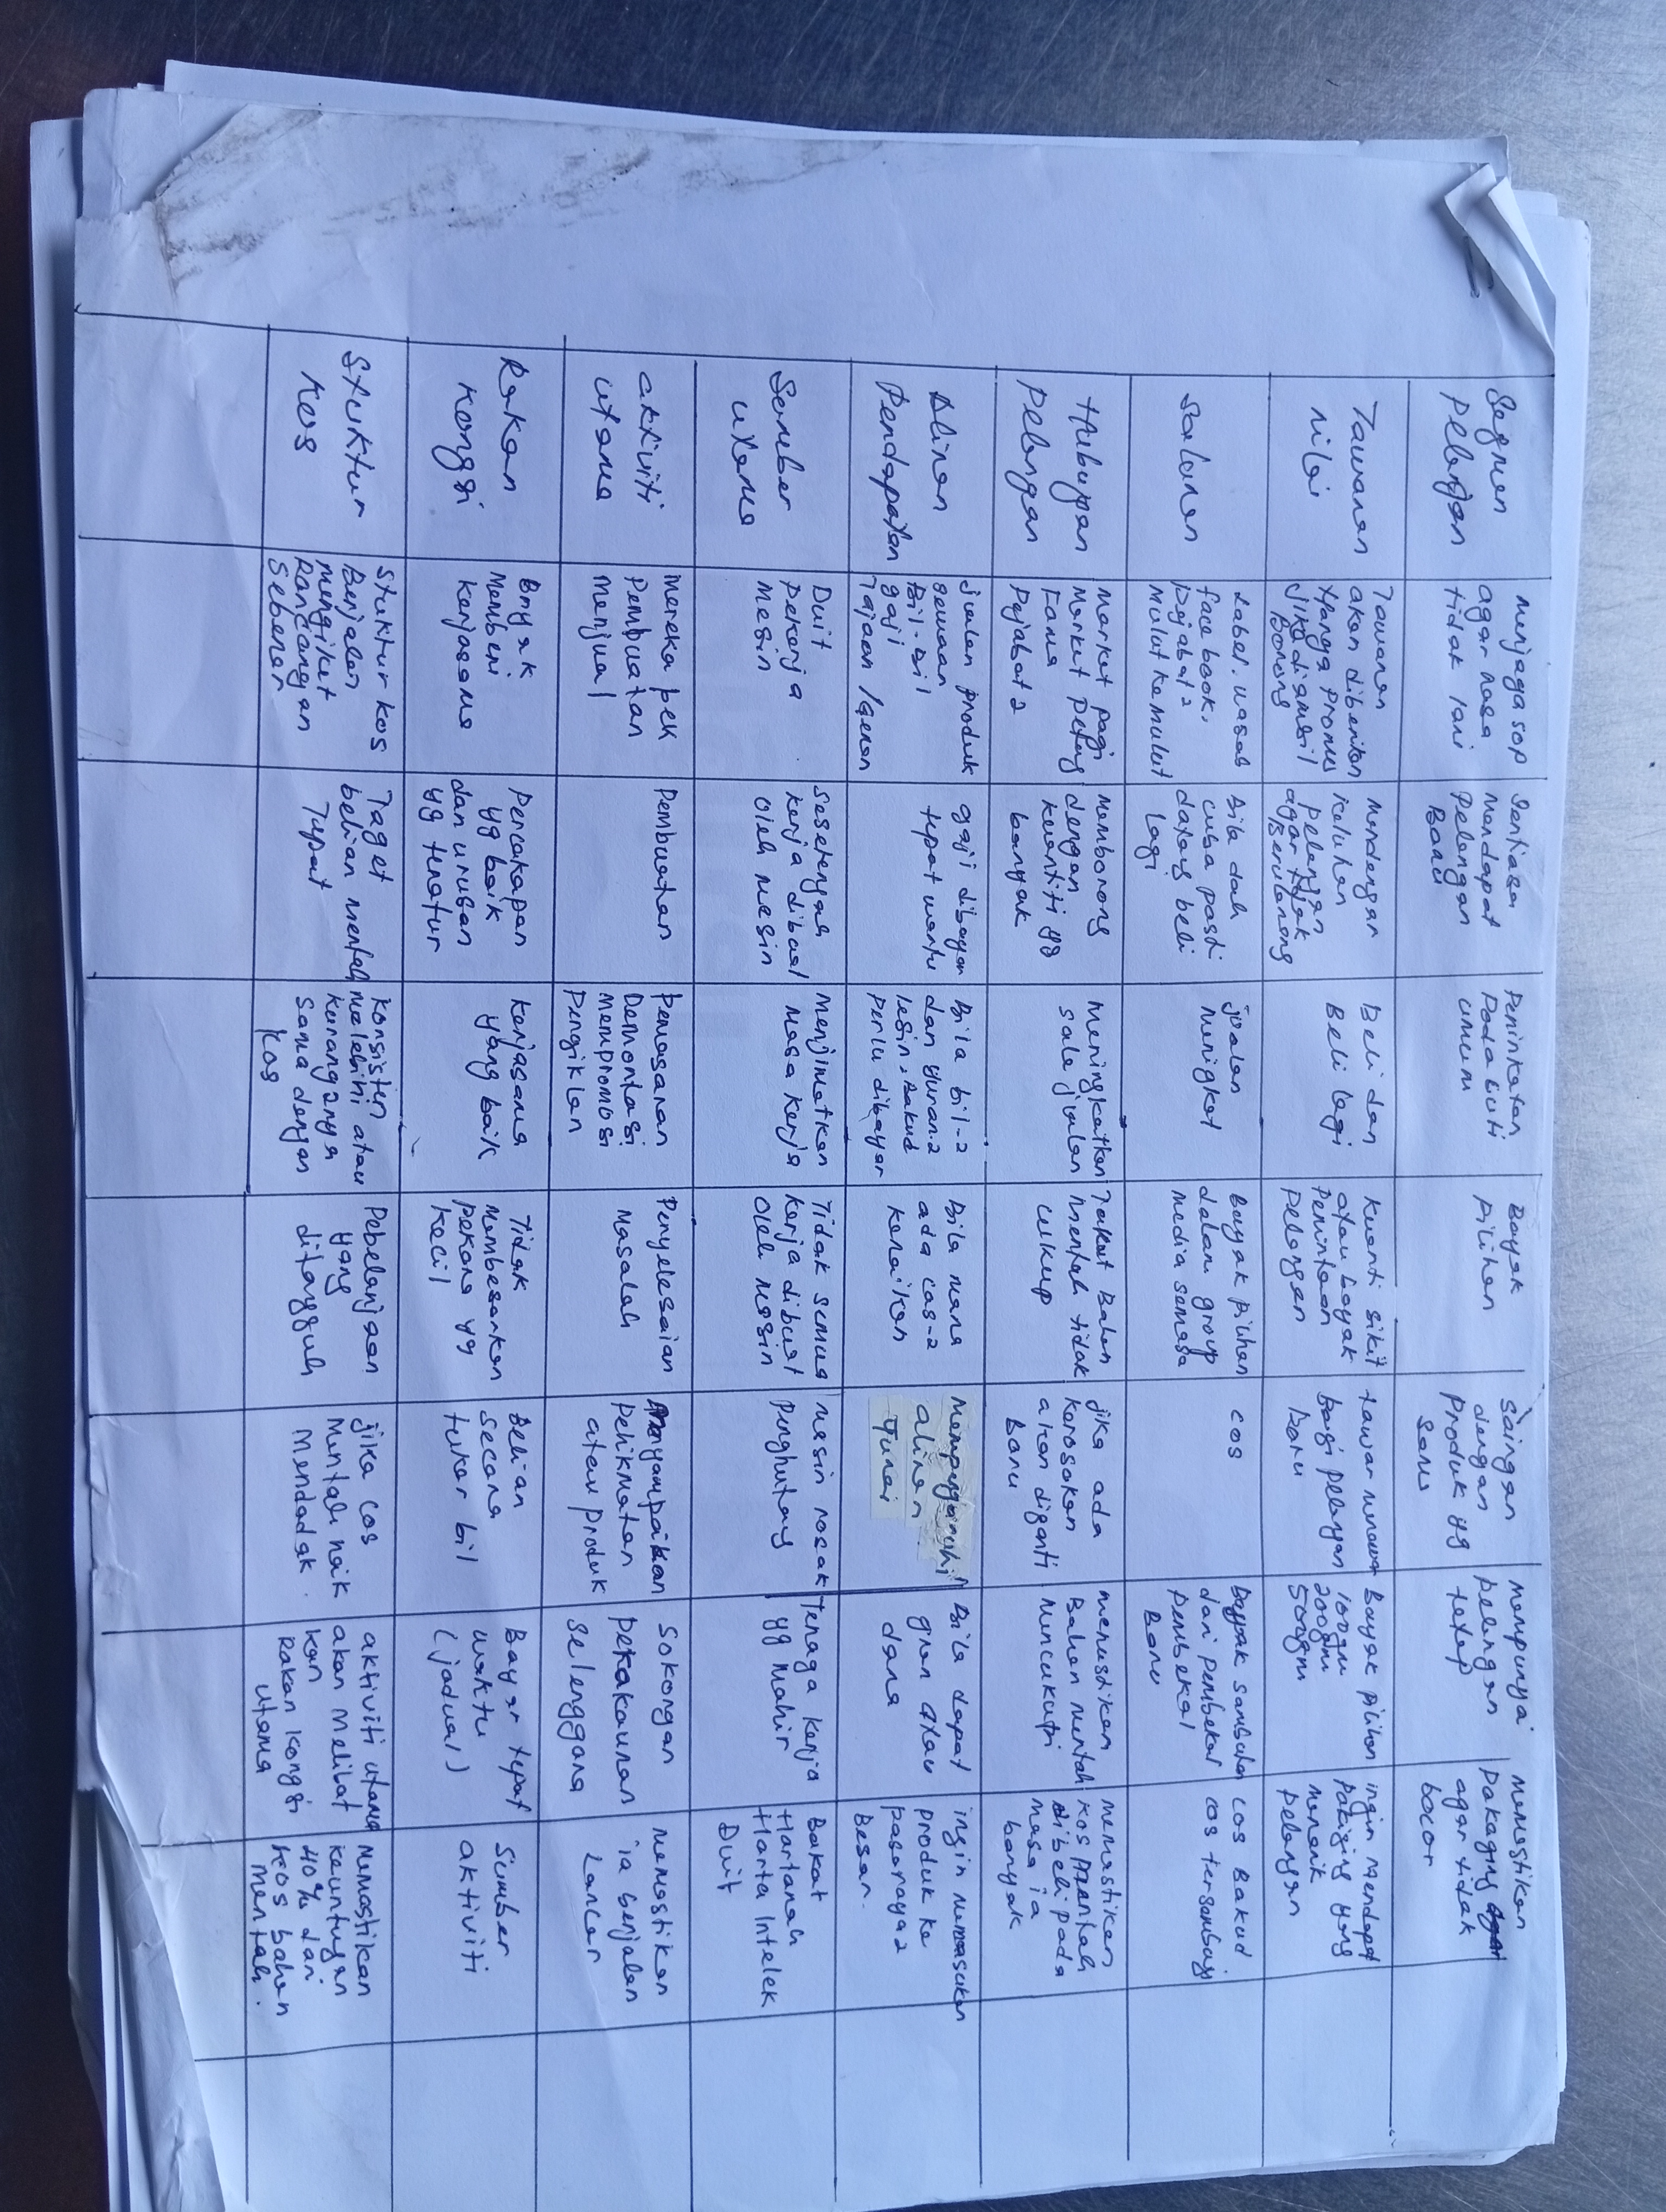 Segmen
Pelangan
menjaga sop
agar rasa
tidak lari
mendapat
pelangan
Baru
pada kuiti
umum
Bayak
pilihan
Saingan
dengan
Produk yg
Sama
mempunyai
pelangan
tetap
Memastikan
Pakaging
agar tidak
bocor
Tawaran
nilai
Tawaran
akan diberikan
Harga Promosi
jika diambil
Borong
Mendengar
keluhan
pelangan
agar tidak
berulang
Beli dan
Beli lagi
Kuanti sikit
atau bayak
Permintaan
pelangan
tawar menawar
bagi pelangan
baru
Bayak pilihan
100gm
200gm
500gm
ingin mendapat
paking yang
menarik
pelangan
Saluran
Label. wasab
face book.
pejabat2
Mulut ke mulut
Bila dah
cuba pasti
datang beli
lagi
jualan
meningkat
bayak pilihan
dalam group
media semasa
cos
Bayak sambutan
dari pembekal
pembekal
Baru
cos Bakud
cos tersembuyi
Hubungan
Pelangan
Market pagi
Market petang
Fama
Pejabat2
Memborong
dengan
kuantiti yg
banyak
Meningkatkan
sale jualan
Takut Bahan
mentah tidak
cukup
jika ada
kerosakan
akan diganti
Baru
memastikan
Bahan mentah
mencukupi
memastikan
kos mentah
dibeli pada
masa ia
banyak
Aliran
Pendapatan
jualan produk
sewaan
Bil-bil
gaji
Tajaan / Geran
gaji dibayar
tepat waktu
Bila bil-2
dan yuran2
lesin, Bakud
perlu dibayar
Bila mana
ada cas-2
kenaikan
Mempengaruhi
aliran
Tunai
Bila dapat
gran atau
dana
ingin memasukan
produk ke
pasaraya2
Besar.
Sumber
utama
Duit
pekerja
mesin
Sesetengah
kerja dibuat
oleh mesin
Menjimatkan
masa kerja
Tidak semua
kerja dibuat
oleh mesin
Mesin rosak
Penghutang
Tenaga kerja
yg Mahir
Bakat
Hartanah
Harta Intelek
Duit
aktiviti
utama
Mereka pek
Pembuatan
menjual
Pembuatan
Pemasaran
Demontasi
mempromosi
Pengiklan
Penyelesaian
Masalah
Menyampaikan
Perkhmatan
atau Produk
Sokongan
Pekakauran
Selenggara
memastikan
ia berjalan
Lancar
Rakan
Kongsi
Bayak
Memberi
kerjasama
Percakapan
yg baik
dan urusan
yg teratur
Kerjasama
yang baik
Tidak
membesarkan
pekara yg
kecil
Belian
secara
tukar bil
Bayar tepat
waktu
(jadual)
Sumber
aktiviti
Stuktur
Kos
Stuktur kos
Berjalan
mengikut
Rancangan
Sebenar
Taget
belian mentah
Tepat
Konsisten
melebihi atau
kurangnya
sama dengan
kos
Pebelanjaan
yang
ditangguh
jika cos
Mentah naik
Mendadak.
aktiviti utama
akan melibat
kan
Rakan kongsi
utama
Memastikan
keuntugan
40% dari
kos bahan
mentah.